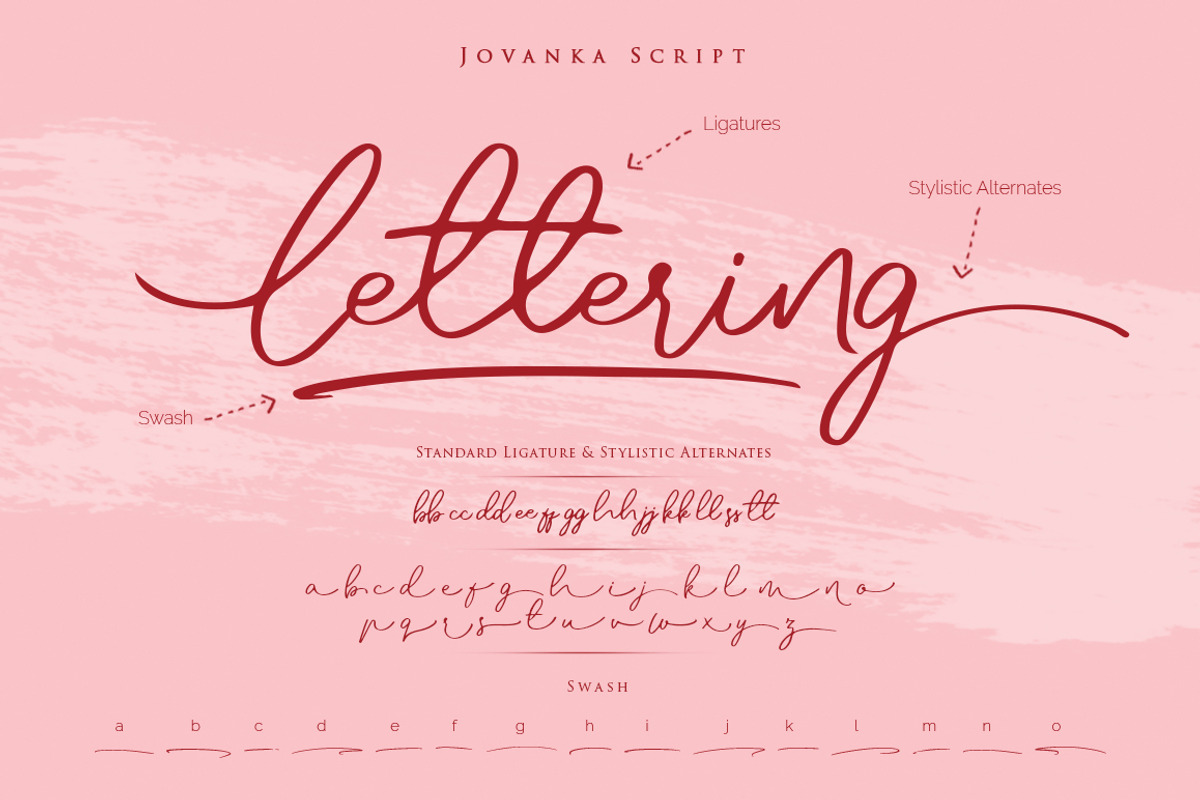 Jovanka Script
Ligatures
Stylistic Alternates
lettering
Swash
Standard Ligature & Stylistic Alternates
bb cc dd ee ff gg hh jj kk ll ss tt
a b c d e f g h i j k l m n o
p q r s t u v w x y z
Swash
a b c d e f g h i j k l m n o